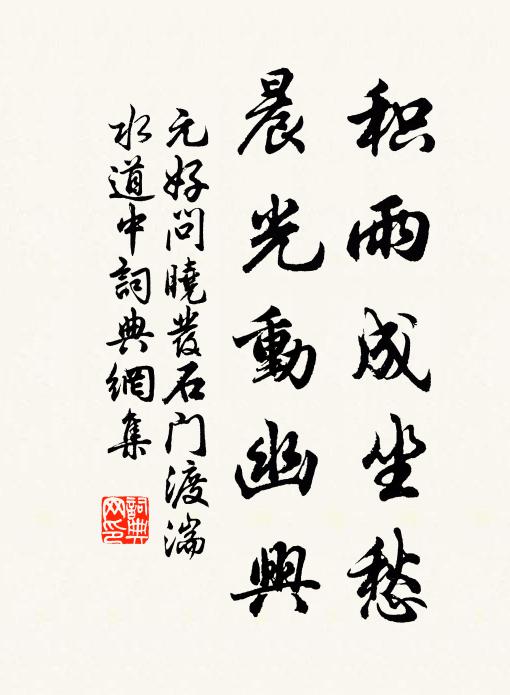 积雨成坐愁
晨光動幽興
元好问曉發石门渡湍
水道中詞典網集
詞典
网印